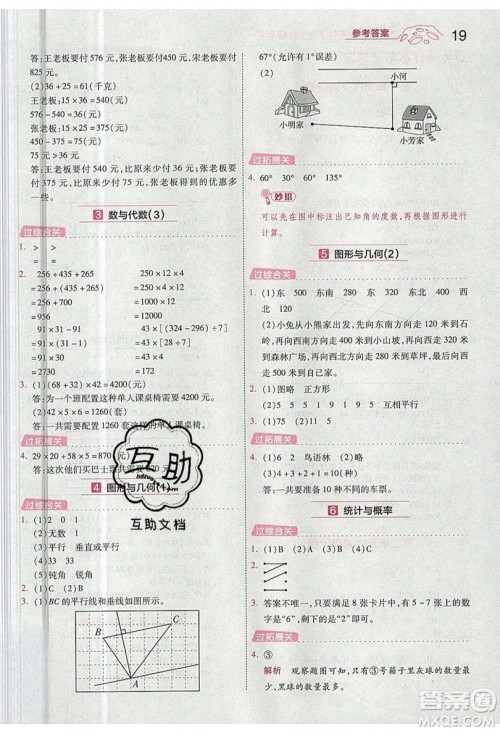 参考答案
19
答:王老板要付 576 元,张老板要付450 元,宋老板要付
825 元。
(2)36 > 26 36 > 30
王老板:15 × 36 = 540(元)
576 > 540 576 - 540 = 36(元)
张老板:15 × 25 = 375(元)
75 元 > 36 元
答:王老板要付 540 元,比原来少付 36 元,张老板要付
375 元,比原来少付 75 元,张老板得到的优惠多
一些。
3 数与代数(3)
过综合关
1. > >
2. 256 + 435 + 265 250 × 12 × 4
= 256 + (435 + 265) = 250 × 4 × 12
= 256 + 700 = 1000 × 12
= 956 = 12000
91 × 31 - 91 560 ÷ 35
= 91 × (31 - 1) = 560 ÷ 7 ÷ 5
= 91 × 30 = 80 ÷ 5
= 2730 = 16
3. (1)(68 + 32) × 42 = 4200(元)
答:为一个班配备的单人课桌椅需要 4200 元。
(2)(42 × 2) × 15 = 1260(套)
答:一共需要 1260 套单人课桌椅。
过拓展关
4. 29 × 20 + 58 × 5 = 870(元)
4 图形与几何(1)
过综合关
1. (1)2 0 1
(2)无数 1
(3)平行 垂直或平行
(5)钝角 锐角
2. (1)B (2)A (3)C (4)B
3. (1)BC 的平行线和垂线如图所示。
B
C
A
67°(允许有 1°误差)
(2)
小河
小明家
小芳家
过拓展关
4. 60° 30° 60° 135°
妙招
可以先在图中标注出已知角的度数,再根据图形关系进
行计算。
5 图形与几何(2)
过综合关
1. (1)东 500 东南 280 东北 400 东 400 西
北 120
(2)小兔从小熊家出发,先向东南方向走 120 米到
小鹿家,再向西南方向走 400 米到小狗家,再向西走
400 米到森林广场,再向西南方向走 280 米到草坪,
最后向西北方向走 280 米到自己家。
2. (1)图略 正方形
(2)5 5 1 9 1 5 1 9 互相平行
过拓展关
3. (1)2 4 鸟语林 西 北
(2)4 + 3 + 2 + 1 = 10(种)
答:一共要准备 10 种不同的车票。
6 统计与概率
过综合关
1. (1)B (2)A (3)B (4)C
2.
3. 答案不唯一,只要保证 8 张卡片中,有 5 ~ 7 张上的
数字"6"即可。
过拓展关
4. ③
解析 观察题图可知,只有③号箱子里灰球的数量最
少,黑球的数量最多。
互助
互助文档
答案圈
MXQE.COM